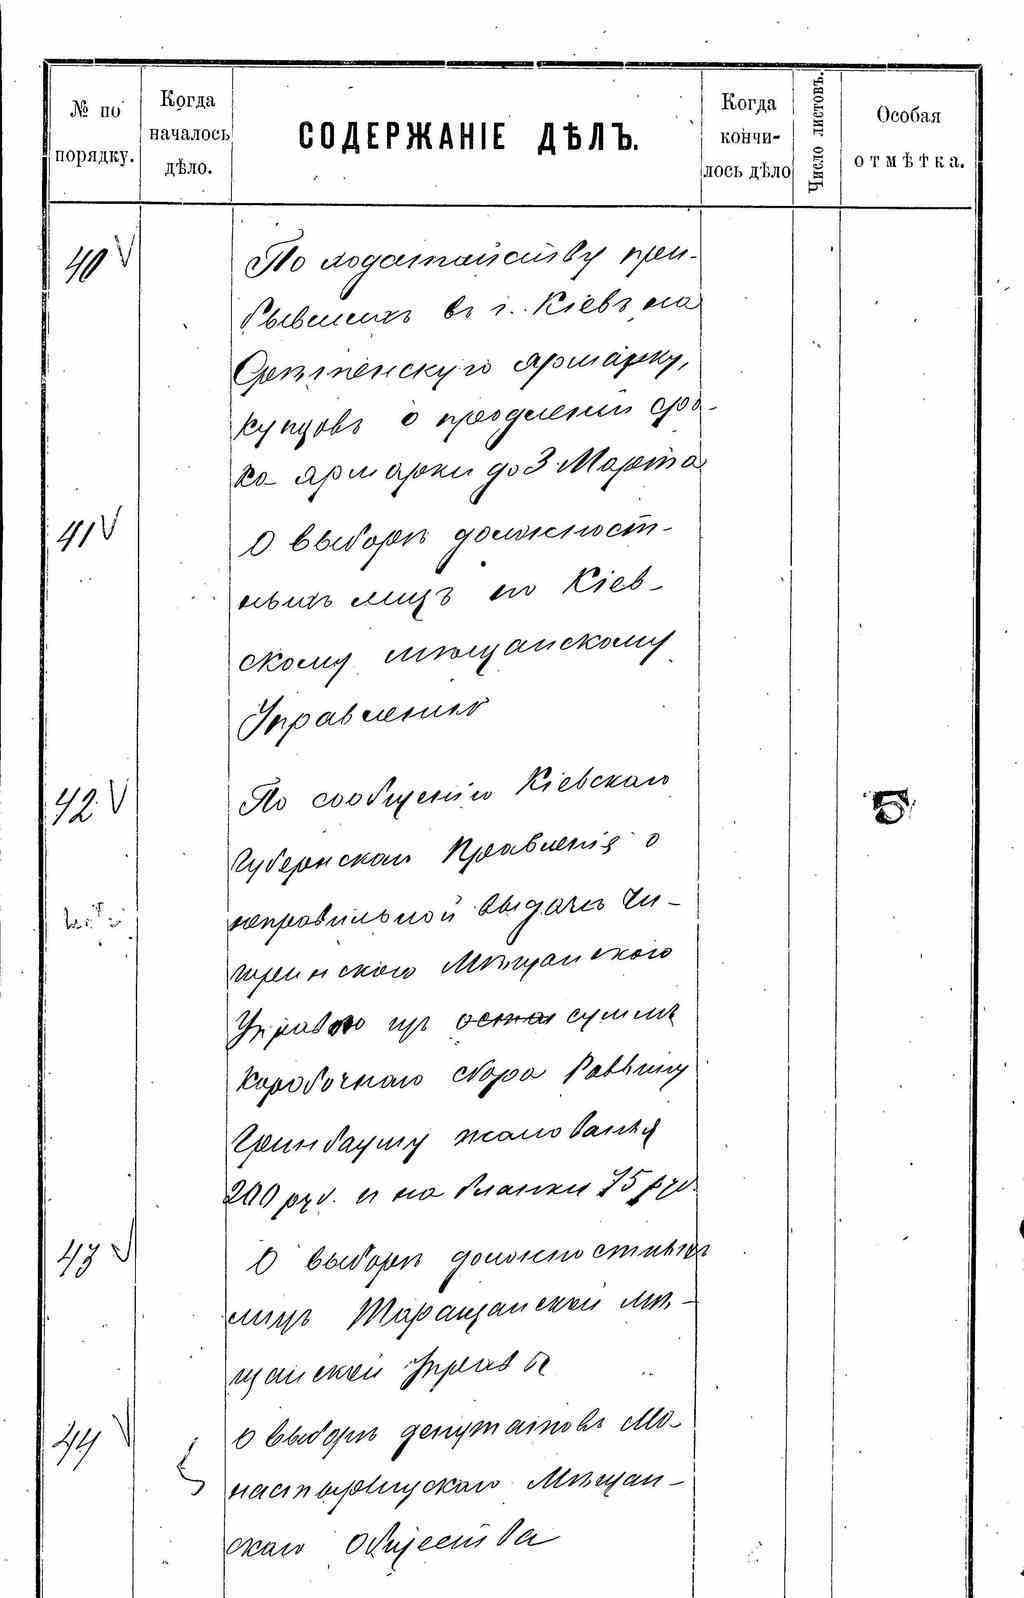 № по порядку.
Когда началось дѣло.
СОДЕРЖАНІЕ ДѢЛЪ.
Когда кончи-лось дѣло
Число листовъ.
Особая отмѣтка.
40
По ходатайству при-
бывшихъ въ г. Кіевъ на
Срѣтенскую ярмарку,
купцовъ о продленіи сро-
ка ярмарки до 3 Марта
41
О выборѣ должност-
ныхъ лицъ по Кіев-
скому мѣщанскому
Управленію
42
По сообщенію Кіевскаго
Губернскаго Правленія о
неправильной выдачѣ Чи-
гиринского Мѣщанского
Управою изъ оста суммъ
коробочнаго сбора Раввину
Гринбауму жалованья
200 руб. и на бланки 75 руб.
5
43
О выборѣ должностныхъ
лицъ Таращанской мѣ-
щанской Управы
44
О выборѣ депутатовъ Мо-
настырищскаго Мѣщан-
скаго общества